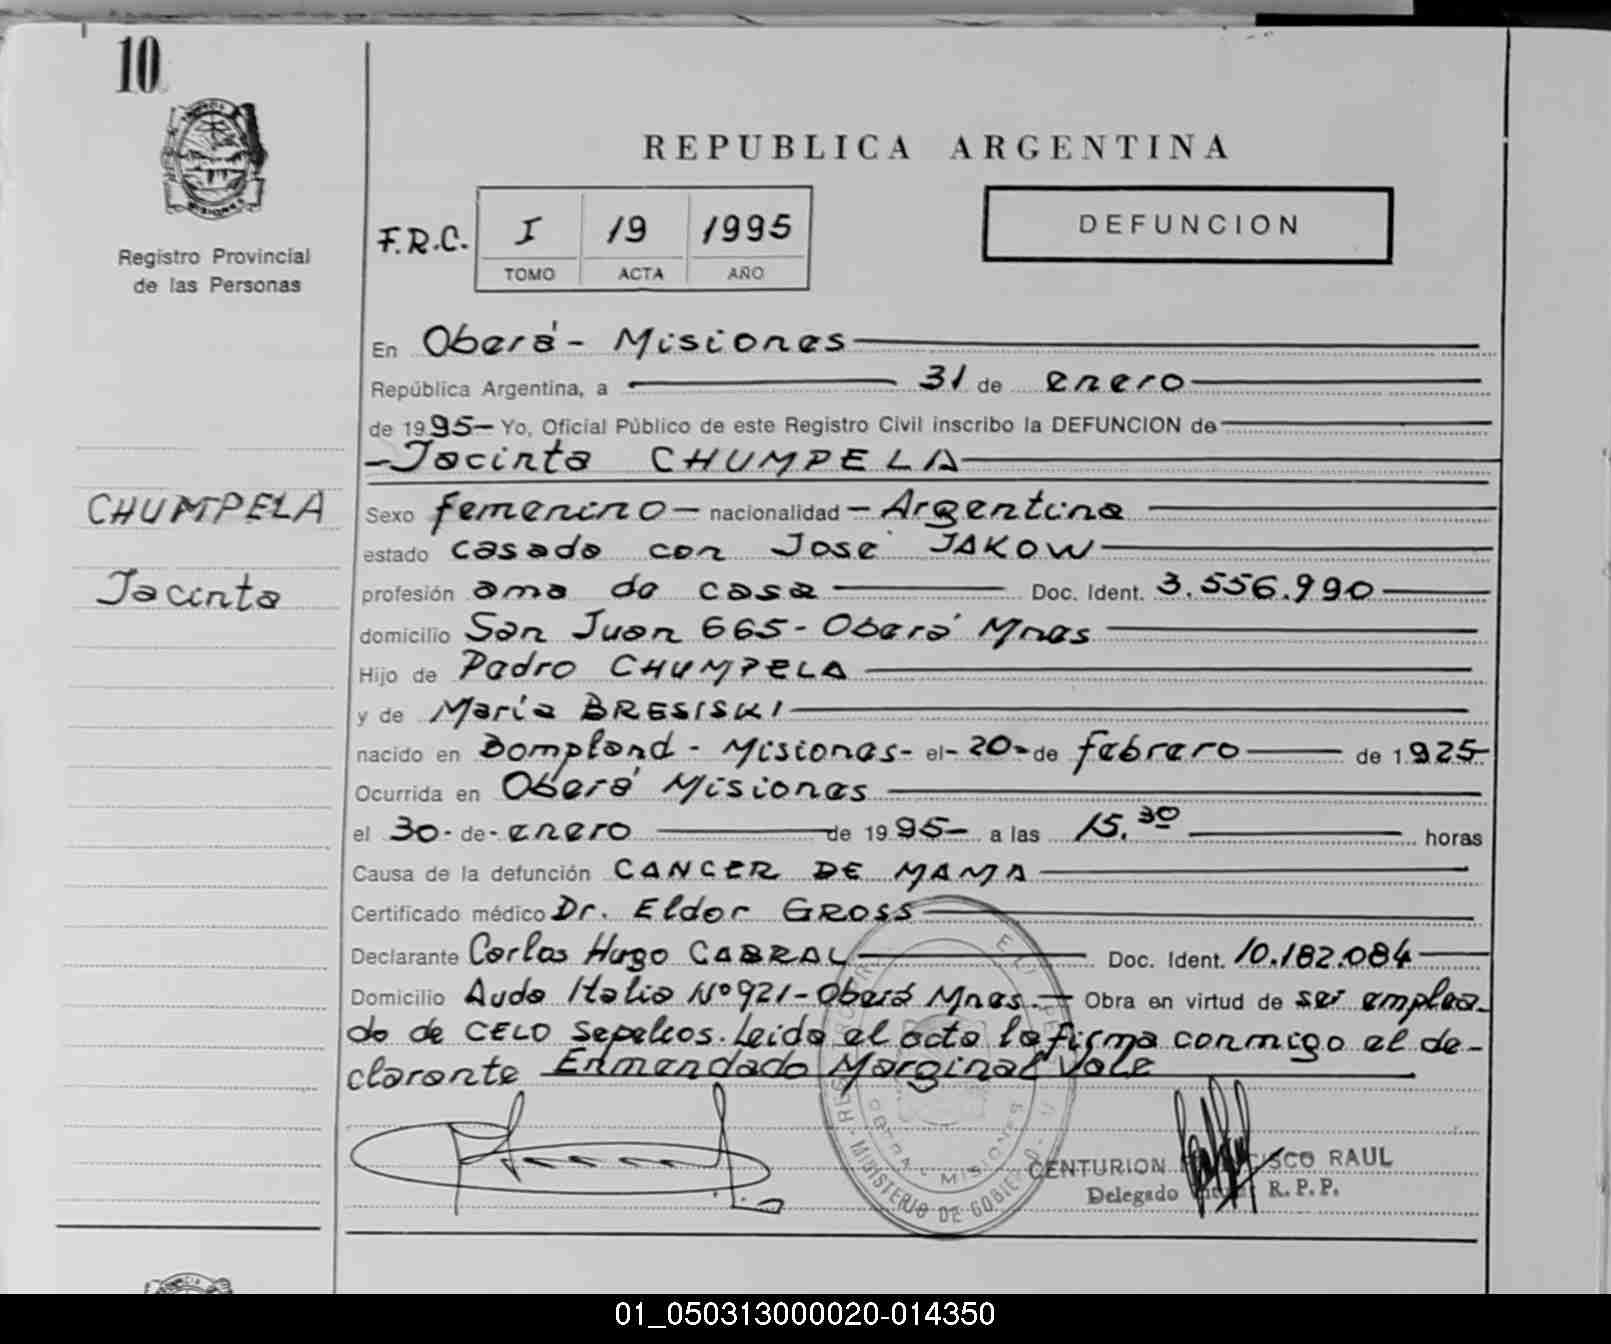 10
MISIONES
Registro Provincial
de las Personas
REPUBLICA ARGENTINA
F.R.C.
I 19 1995
TOMO ACTA AÑO
DEFUNCION
En Oberá - Misiones
República Argentina, a 31 de enero
de 1995 - Yo, Oficial Público de este Registro Civil inscribo la DEFUNCION de
- Jacinta CHUMPELA
CHUMPELA
Jacinta
Sexo femenino - nacionalidad - Argentina
estado casada con José JAKOW
profesión ama de casa Doc. Ident. 3.556.990
domicilio San Juan 665 - Oberá Mnes
Hijo de Pedro CHUMPELA
y de María BRESISKI
nacido en Bompland - Misiones - el - 20 - de febrero de 1925
Ocurrida en Oberá Misiones
el 30 - de - enero de 1995 - a las 15.30 horas
Causa de la defunción CANCER DE MAMA
Certificado médico Dr. Eldor GROSS
Declarante Carlos Hugo CABRAL Doc. Ident. 10.182.084
Domicilio Avda Italia Nº 921 - Oberá Mnes. - Obra en virtud de ser emplea-
do de CELO Sepelios. Leida el acta la firma conmigo el de-
clarante Enmendado Marginal Vale
MINISTERIO DE GOBIERNO
OBERA - MISIONES
CENTURION RAUL
Delegado R.P.P.
01_050313000020-014350